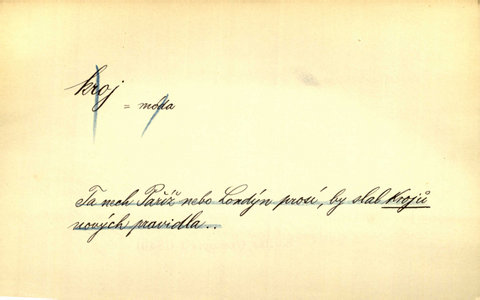 kroj
= moda
Ta nech Paříž nebo Londýn prosí, by slal krojů
nových pravidla...